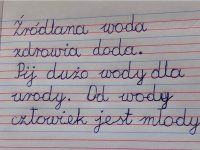 Źródlana woda
zdrowia doda.
Pij dużo wody dla
urody. Od wody
człowiek jest młody